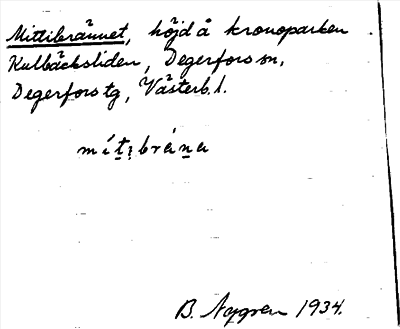 Mittibrännet, höjd å kronoparken
Kulbäcksliden, Degerfors sn,
Degerfors tg, Västerb. l.
mít̲ı̣brán̲a
B. Nygren 1934.